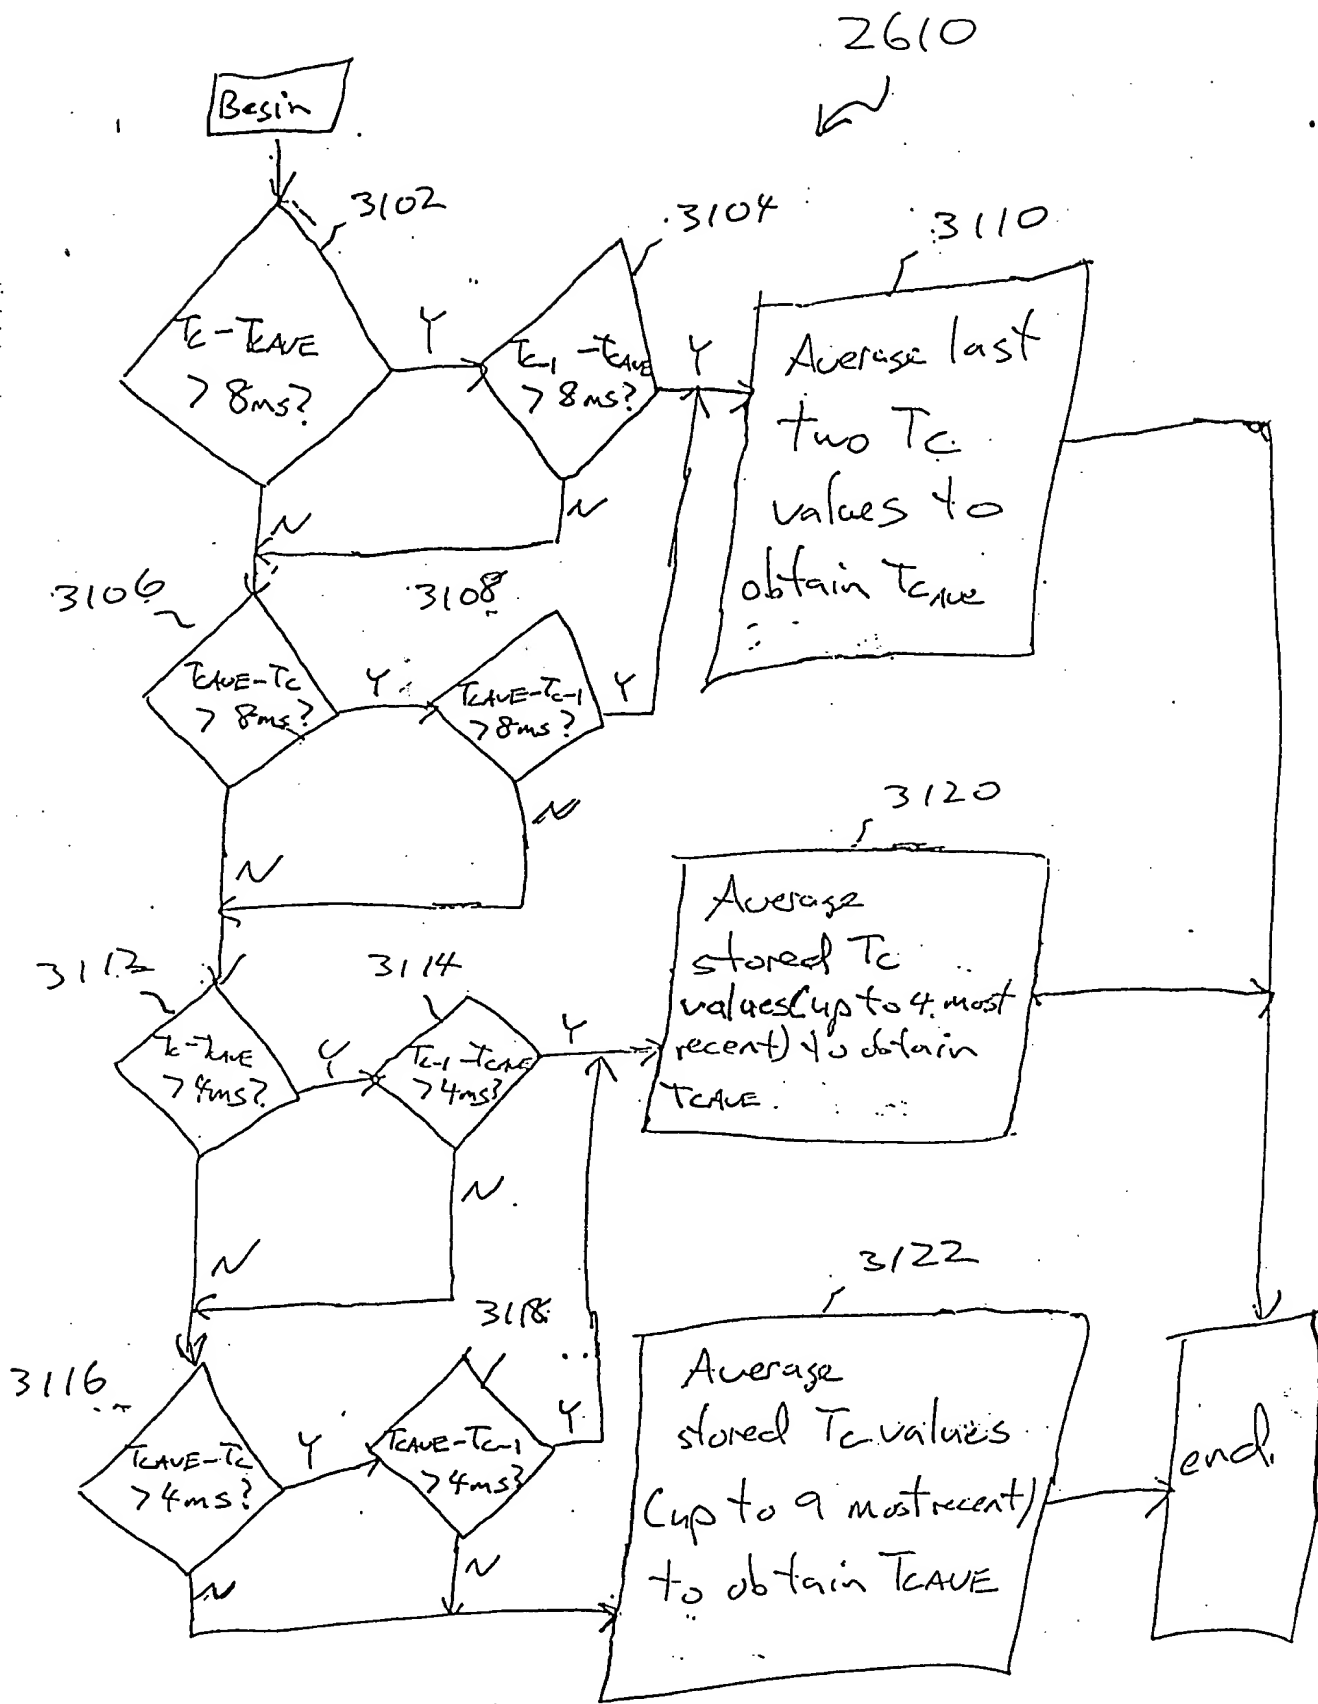 2610
Begin
3102
3104
3110
Tc-TCAVE
> 8ms?
Y
Tc-1 -TCAVE
> 8ms?
Y
Average last
two Tc
values to
obtain TCAVE
N
N
3106
3108
TCAVE-Tc
> 8ms?
Y
TCAVE-Tc-1
> 8ms?
Y
N
N
3120
Average
stored Tc
values(up to 4 most
recent) to obtain
TCAVE.
3112
3114
Tc-TCAVE
> 4ms?
Y
Tc-1 -TCAVE
> 4ms?
Y
N
N
3122
3118
3116
TCAVE-Tc
> 4ms?
Y
TCAVE-Tc-1
> 4ms?
Y
N
N
Average
stored Tc values
(up to 9 most recent)
to obtain TCAVE
end.